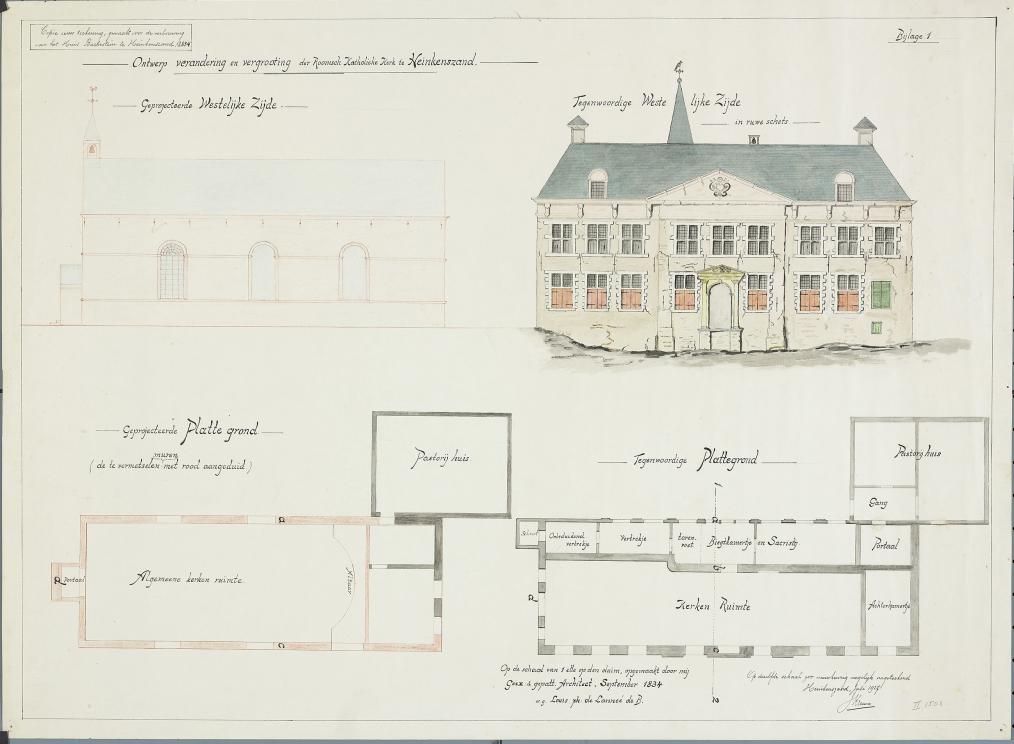 Copie eener teekening, gemaakt voor de verbouwing
van het Huis Barbestein te Heinkenszand, 1834
Bijlage 1
Ontwerp verandering en vergrooting der Roomsch Katholieke Kerk te Heinkenszand.
Geprojecteerde Westelijke Zijde.
Tegenwoordige Westelijke Zijde
in ruwe schets.
Geprojecteerde Platte grond
muren
(de te vermetselen met rood aangeduid)
Pastorij huis
Tegenwoordige Plattegrond
Pastorij huis
Gang
1
Portaal
Algemeene kerken ruimte.
Altaar
Vertrekje
toren
Biegtkamertje en Sacristij
Portaal
Kerken Ruimte
Achterkamertje
Op de schaal van 1 elle op den duim, opgemaakt door mij
Geëx & gepatt. Architect, September 1834
w.g. Louis ph. de Lannée de B.
2
Op dezelfde schaal zoo nauwkeurig mogelijk nageteekend
Heinkenszand, Juli
II 1503